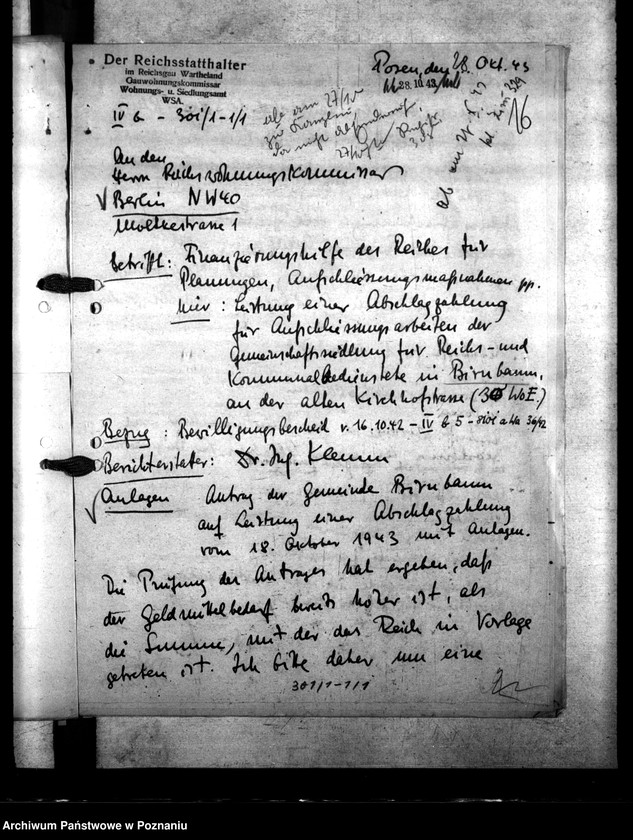 Der Reichsstatthalter
im Reichsgau Wartheland
Gauwohnungskommissar
Wohnungs- u. Siedlungsamt
WSA.
Posen, den 28. Okt. 43
28.10.43
16
IV b - 301/1-1/1
An den
Herrn Reichswohnungskommissar
Berlin NW40
Moltkestrasse 1
Betrifft: Finanzierungshilfe des Reiches für
Planungen, Aufschliessungsmaßnahmen pp.
hier: Leistung einer Abschlagzahlung
für Aufschliessungsarbeiten der
Gemeinschaftssiedlung für Reichs- und
Kommunalbedienstete in Birnbaum,
an der alten Kirchhofstrasse (30 WoE.)
Bezug: Bewilligungsbescheid v. 16.10.42 - IV b 5 -
Berichterstatter: Dr. Ing. Klemm
Anlagen Antrag der Gemeinde Birnbaum
auf Leistung einer Abschlagzahlung
vom 18. Oktober 1943 mit Anlagen.
Die Prüfung des Antrages hat ergeben, daß
der Geldmittelbedarf bereits höher ist, als
die Summe, mit der das Reich in Vorlage
getreten ist. Ich bitte daher um eine
301/1-1/1
Archiwum Państwowe w Poznaniu